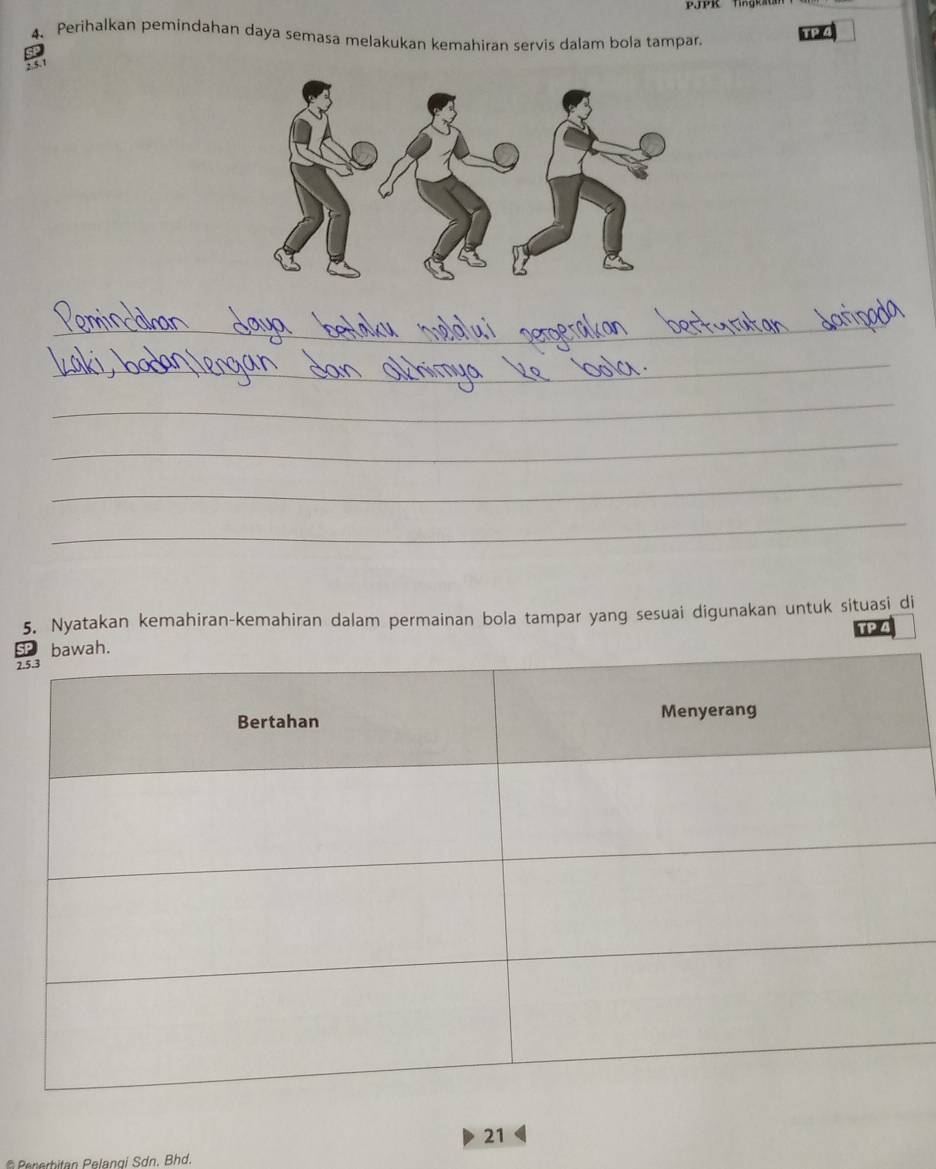 PJPK Tingkatan
4. Perihalkan pemindahan daya semasa melakukan kemahiran servis dalam bola tampar.
TP 4
SP
2.5.1
Pemindahan daya berlaku melalui pergerakan berturutan daripada
kaki, badan, lengan dan akhirnya ke bola.
5. Nyatakan kemahiran-kemahiran dalam permainan bola tampar yang sesuai digunakan untuk situasi di
SP bawah.
TP 4
2.5.3
Bertahan Menyerang
21
© Penerbitan Pelangi Sdn. Bhd.